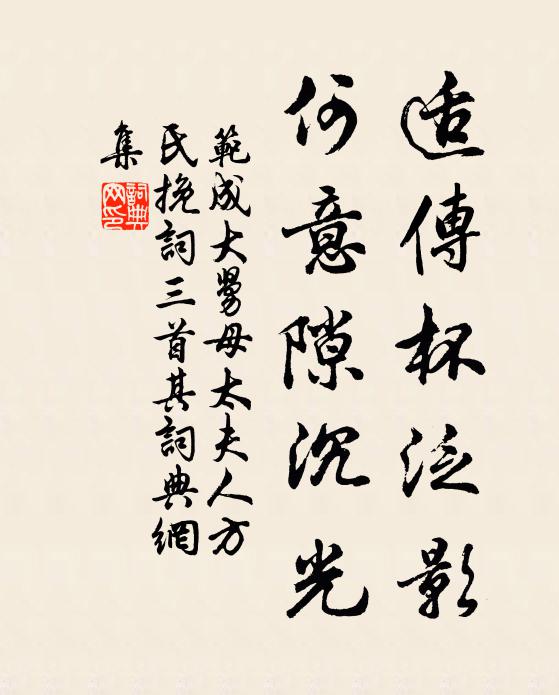 适傳杯泛影
何意隙沉光
範成大舅母太夫人方
氏挽詞三首其詞典網
集
詞典
网印